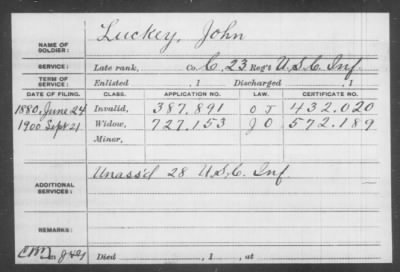 Luckey, John
NAME OF SOLDIER:
SERVICE: Late rank, Co. C, 23 Reg't U.S.C. Inf.
TERM OF SERVICE: Enlisted , 1 Discharged , 1
DATE OF FILING. CLASS. APPLICATION NO. LAW. CERTIFICATE NO.
1880, June 24 Invalid, 387.891 432.020
1900 Sept 21 Widow, 727.153 572.189
Minor,
ADDITIONAL SERVICES: Unass'd 28 U.S.C. Inf
REMARKS:
Died , 1 , at